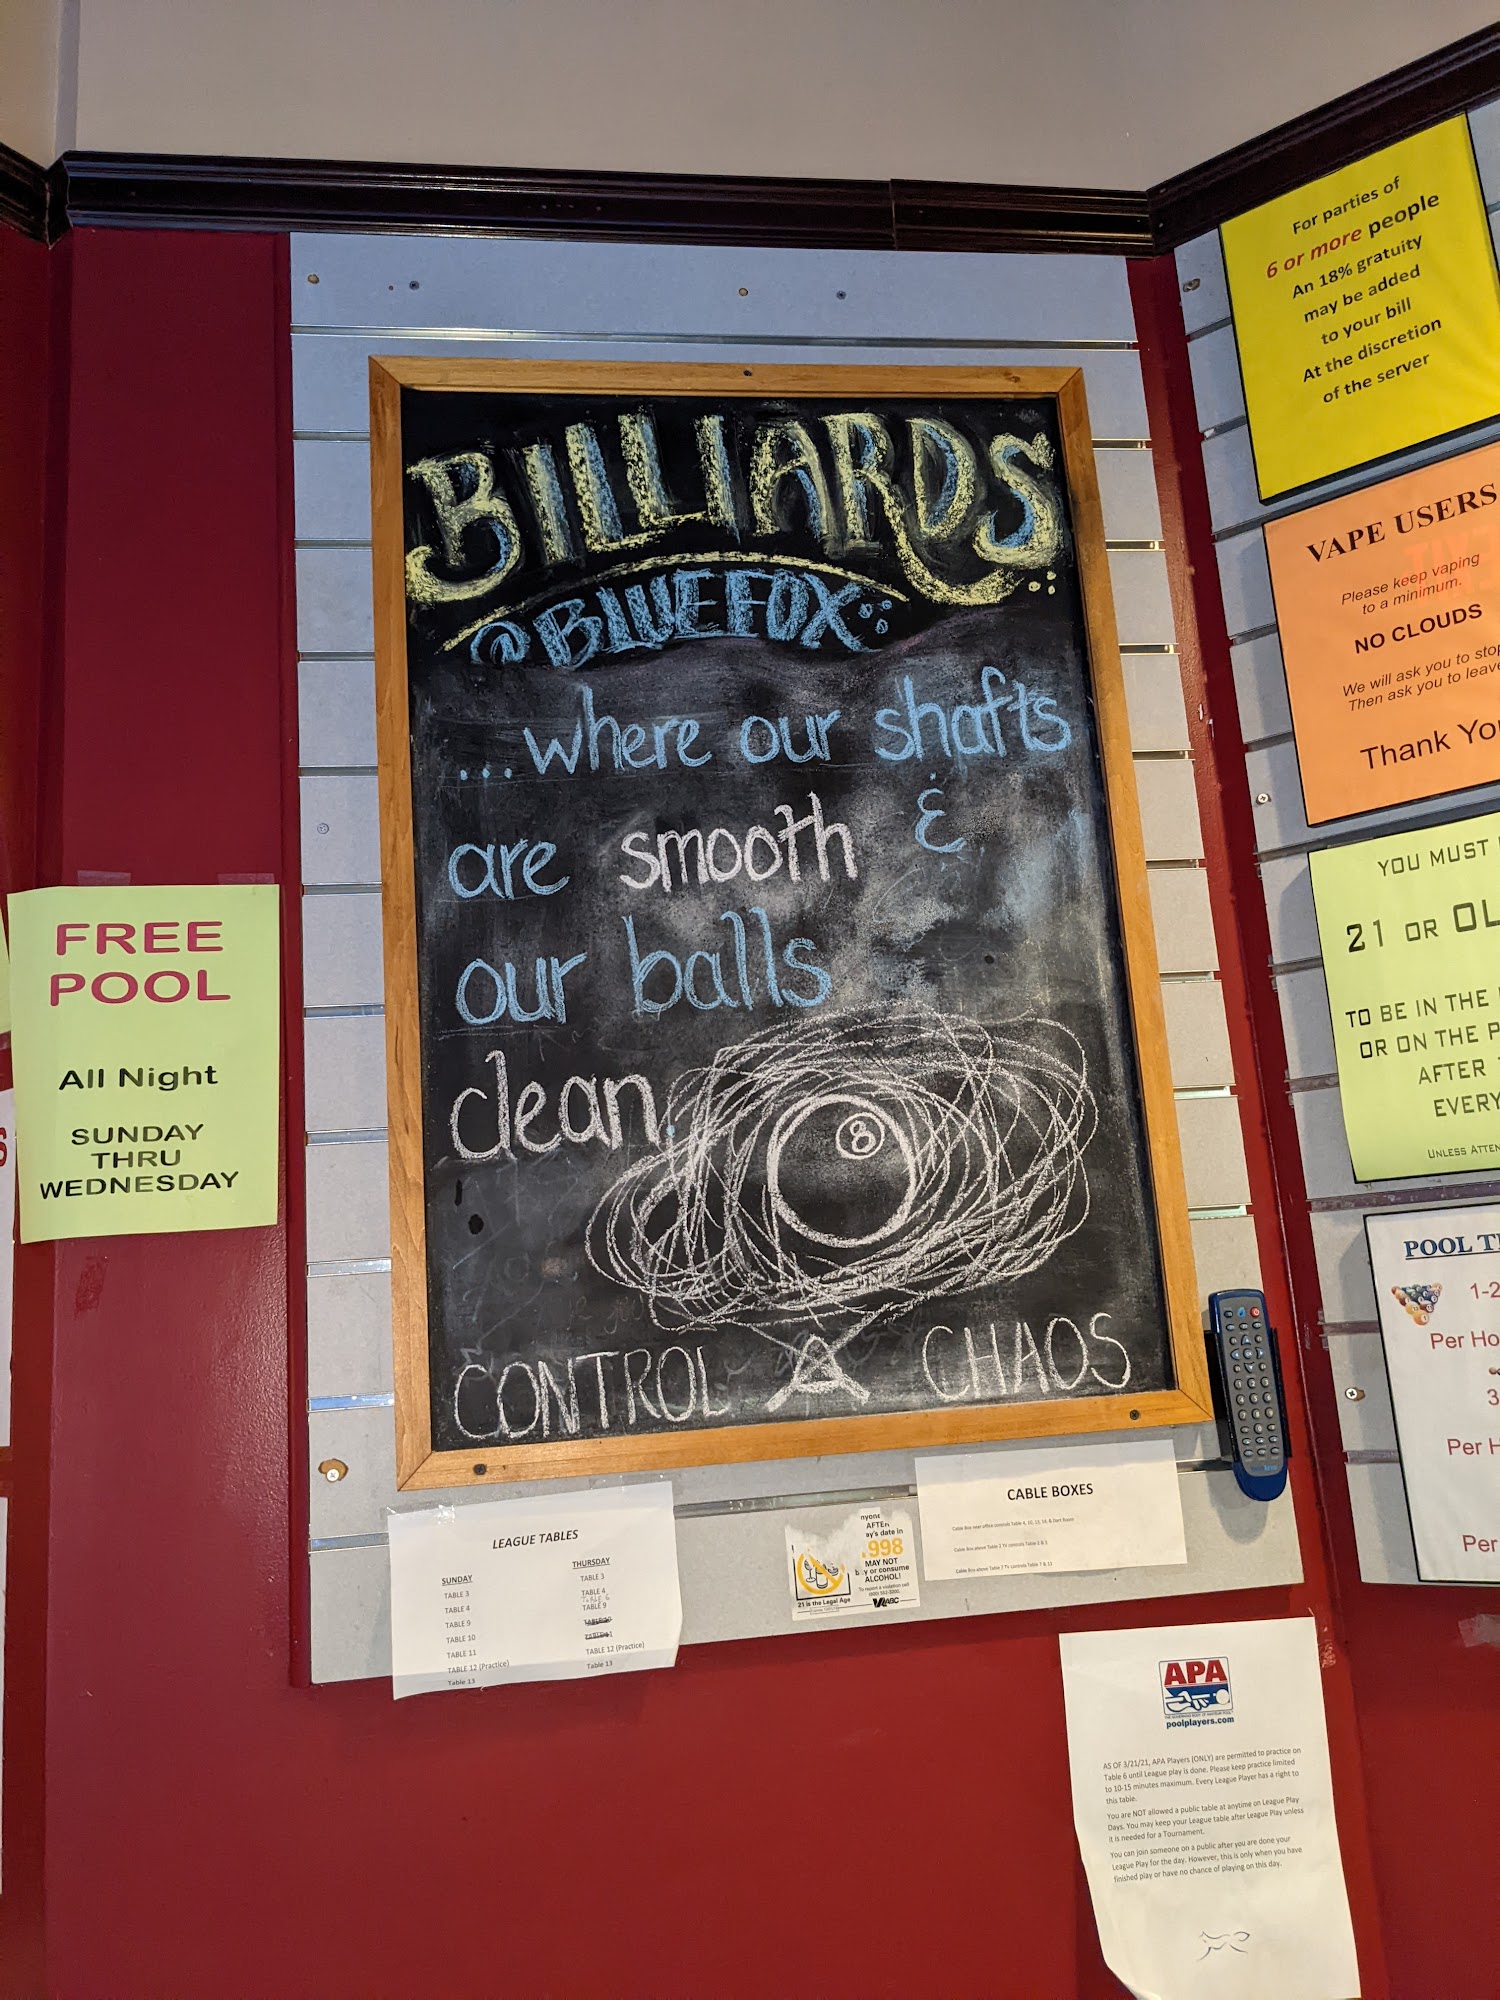 BILLIARDS
@BLUEFOX
...where our shafts
are smooth &
our balls
clean.
8
CONTROL CHAOS
FREE
POOL
All Night
SUNDAY
THRU
WEDNESDAY
For parties of
6 or more people
An 18% gratuity
may be added
to your bill
At the discretion
of the server
VAPE USERS
Please keep vaping
to a minimum.
NO CLOUDS
We will ask you to stop
Then ask you to leave
Thank You
YOU MUST
21 OR OL
TO BE IN THE
OR ON THE P
AFTER
EVERY
UNLESS ATTEN
POOL TI
1-2
Per Ho
3
Per H
Per
LEAGUE TABLES
SUNDAY
TABLE 3
TABLE 4
TABLE 9
TABLE 10
TABLE 11
TABLE 12 (Practice)
Table 13
THURSDAY
TABLE 3
TABLE 4
TABLE 6
TABLE 9
TABLE 12 (Practice)
Table 13
nyone
AFTER
ay's date in
.998
MAY NOT
or consume
ALCOHOL!
To report a violation call
21 is the Legal Age
ABC
CABLE BOXES
APA
poolplayers.com
AS OF 3/21/21, APA Players (ONLY) are permitted to practice on
Table 6 until League play is done. Please keep practice limited
to 10-15 minutes maximum. Every League Player has a right to
this table.
You are NOT allowed a public table at anytime on League Play
Days. You may keep your League table after League Play unless
it is needed for a Tournament.
You can join someone on a public after you are done your
League Play for the day. However, this is only when you have
finished play or have no chance of playing on this day.